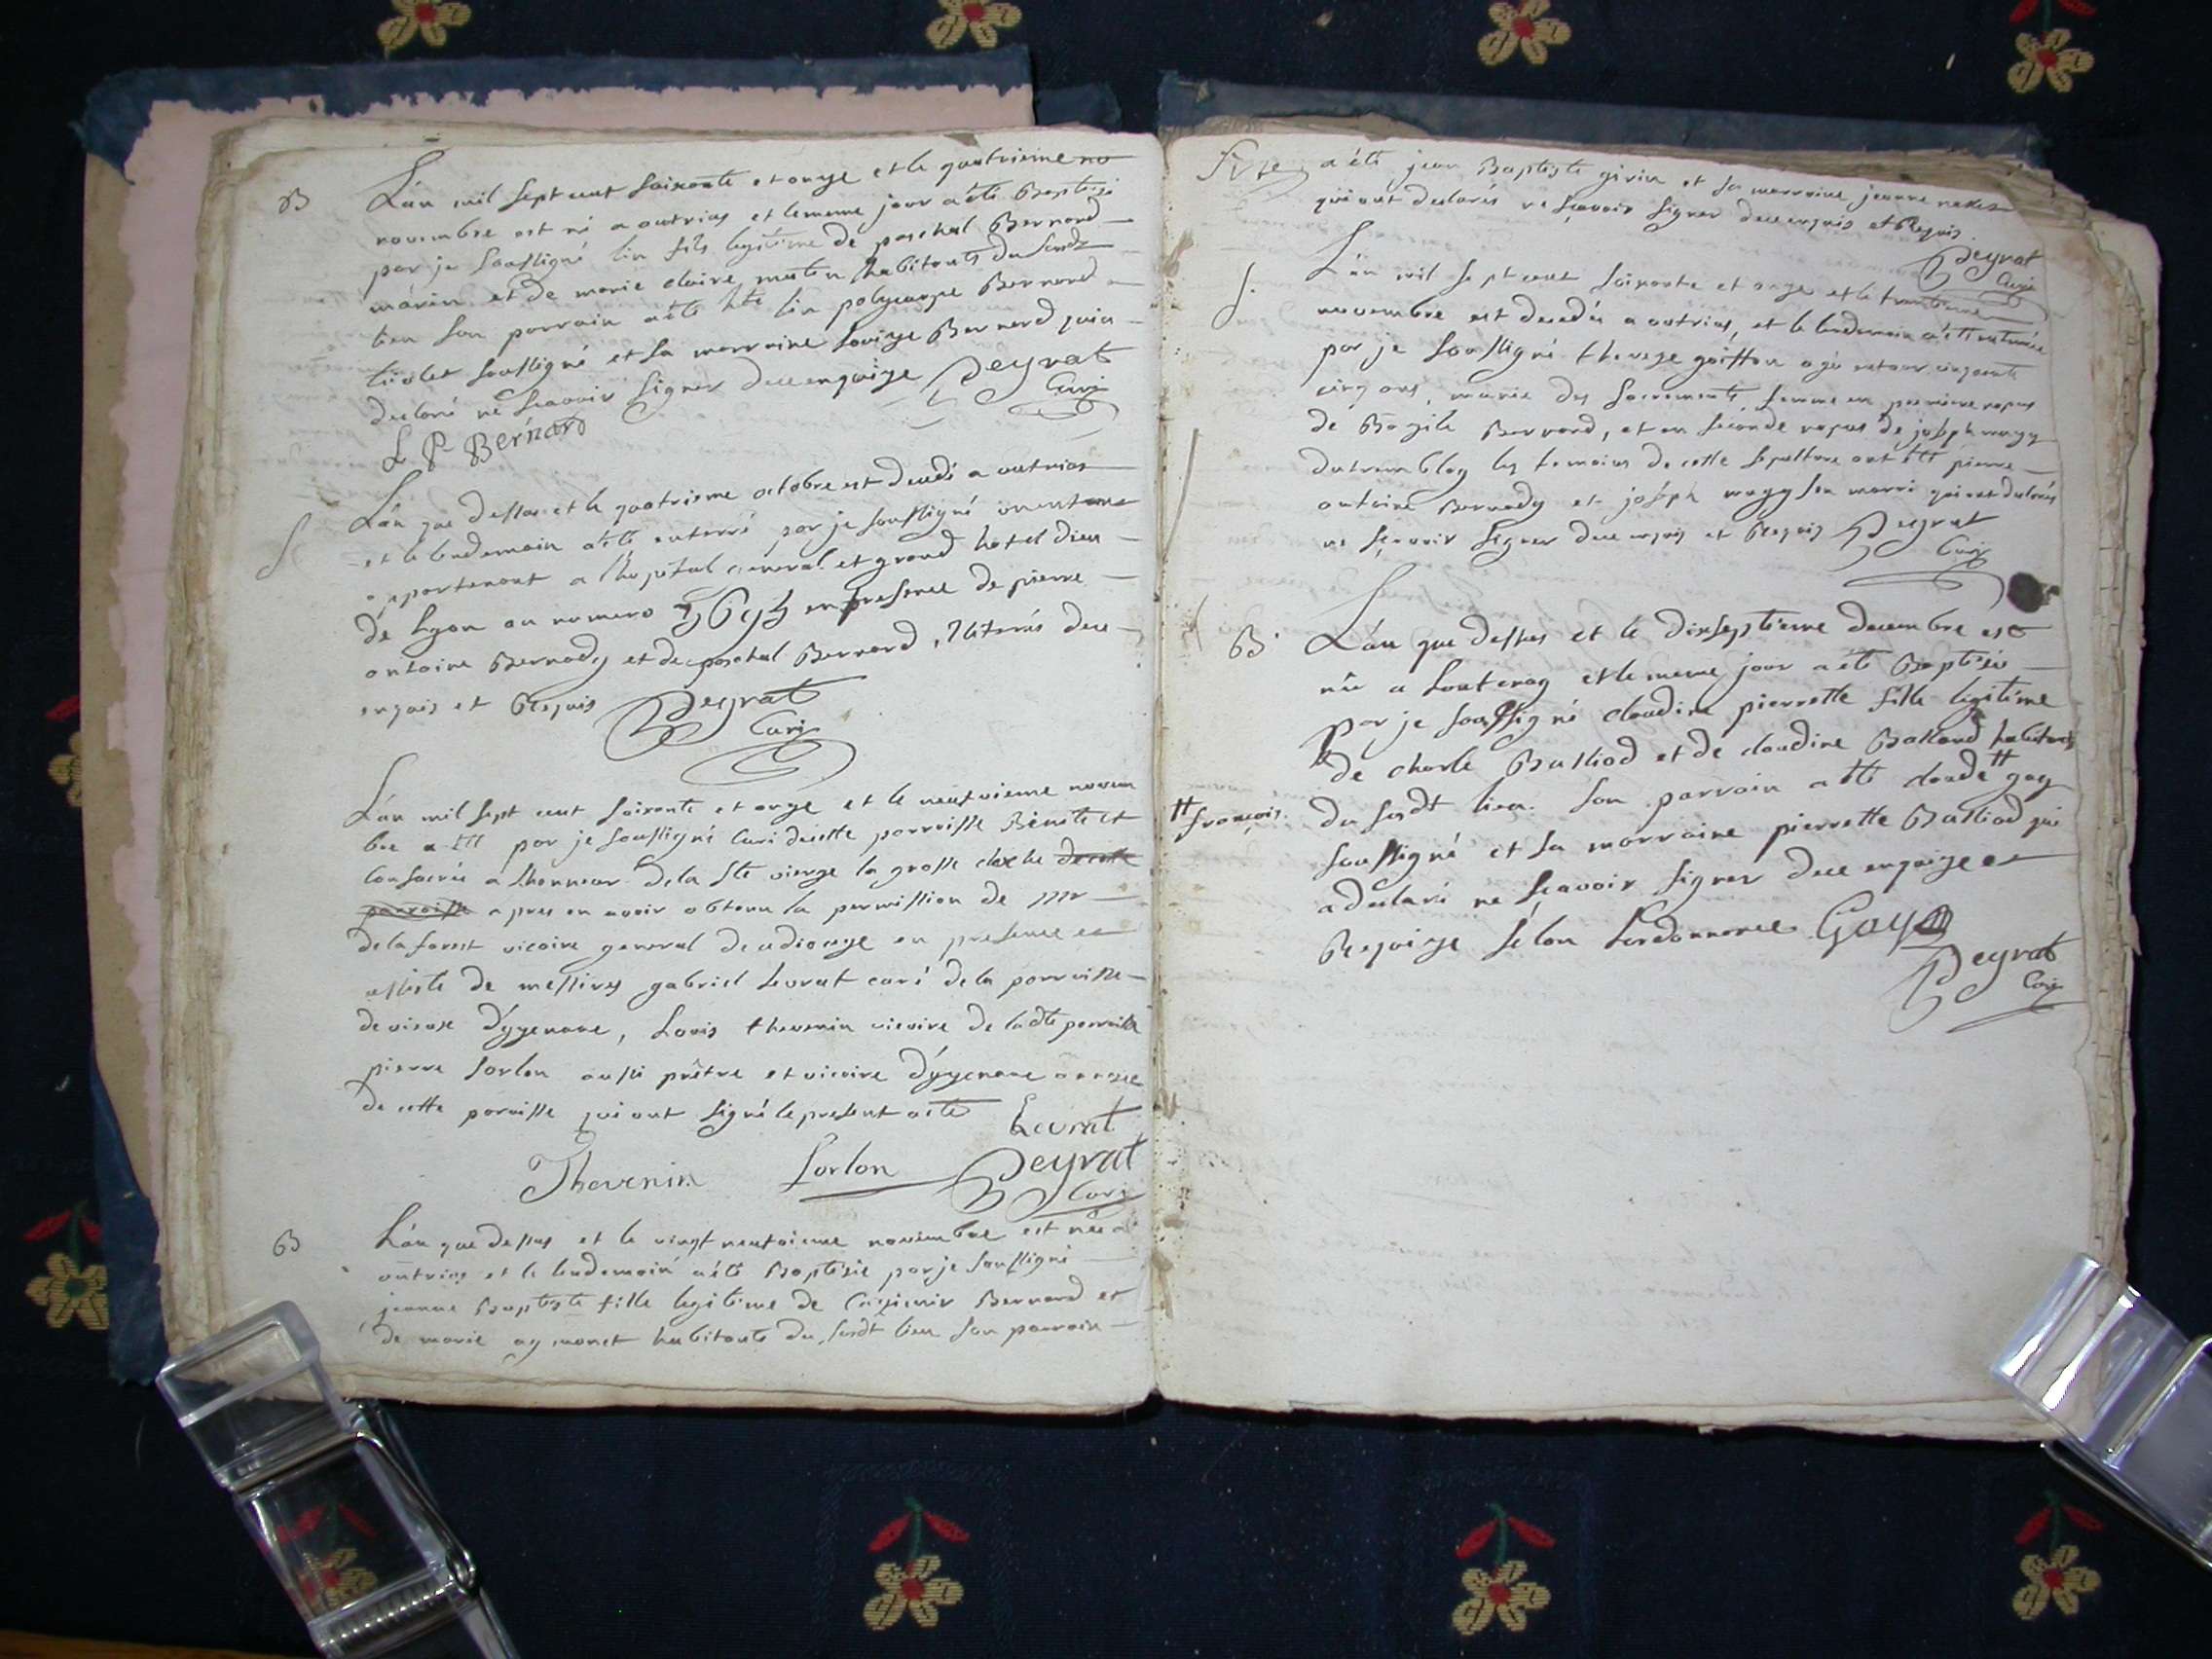 B
L'an mil sept cent soixante et onze et le quatrieme no
novembre est né a outrias et le meme jour a été Baptisé
par je soussigné lin fils legitime de paschal Bernard
marin et de marie claire mutin habitants du susdt
lieu son parrain a été lin polycarpe Bernard
soussigné et sa marraine Louise Bernard qui a
declaré ne scavoir signer de ce enquise Peyrat
Curé
L P Bernard
S
L'an que dessus et le quatrieme octobre est decedé a outrias
et le lendemain a été enterré par je soussigné un enfant
appartenant a l'hopital general et grand hotel dieu
de Lyon au numero en presence de pierre
antoine Bernady et de paschal Bernard, illiterés de ce
enquis et Requis Peyrat
Curé
L'an mil sept cent soixante et onze et le neufvieme novem
bre a été par je soussigné Curé de cette parroisse Benite et
Consacrée a l'honneur de la Ste vierge la grosse cloche de cette
parroisse apres en avoir obtenu la permission de Mr
de la forest vicaire general de ce dioceze en presence et
assisté de messires gabriel Levrat curé de la parroisse
de vieux d'yzenave, Louis thevenin vicaire de ladte parroisse
pierre Sorlon aussi prêtre et vicaire d'yzenave annexe
de cette paroisse qui ont signé le present acte Levrat
Thevenin Sorlon Peyrat
Curé
B
L'an que dessus et le vingt neufvieme novembre est née a
outrias et le lendemain a été Baptisée par je soussigné
jeanne Baptiste fille legitime de Casimir Bernard et
de marie aymonet habitants du susdt lieu son parrain
a été jean Baptiste girin et sa marraine jeanne
qui ont declarés ne sçavoir signer de ce enquis et Requis.
Peyrat
Curé
S.
L'an mil sept cent soixante et onze et le trentieme
novembre est decedée a outrias, et le lendemain a été enterrée
par je soussigné thereze goiffon agée cinquante
cinq ans, munie des sacrements, femme en premiere nopces
de Bazile Bernard, et en seconde nopces de joseph
du tremblay les temoins de cette sepulture ont été pierre
antoine Bernady et joseph son marri qui ont declarés
ne sçavoir signer de ce enquis et Requis Peyrat
Curé
B.
L'an que dessus et le dixseptieme decembre est
née a Lantenay et le meme jour a été Baptisée
par je soussigné claudine pierrette fille legitime
de charle Bailliod et de claudine Balland habitants
du susdt lieu. son parrain a été claude # gay
# françois.
soussigné et sa marraine pierrette Bailliod qui
a declaré ne sçavoir signer de ce enquise et
Requise selon Lordonnance Gay
Peyrat
Curé